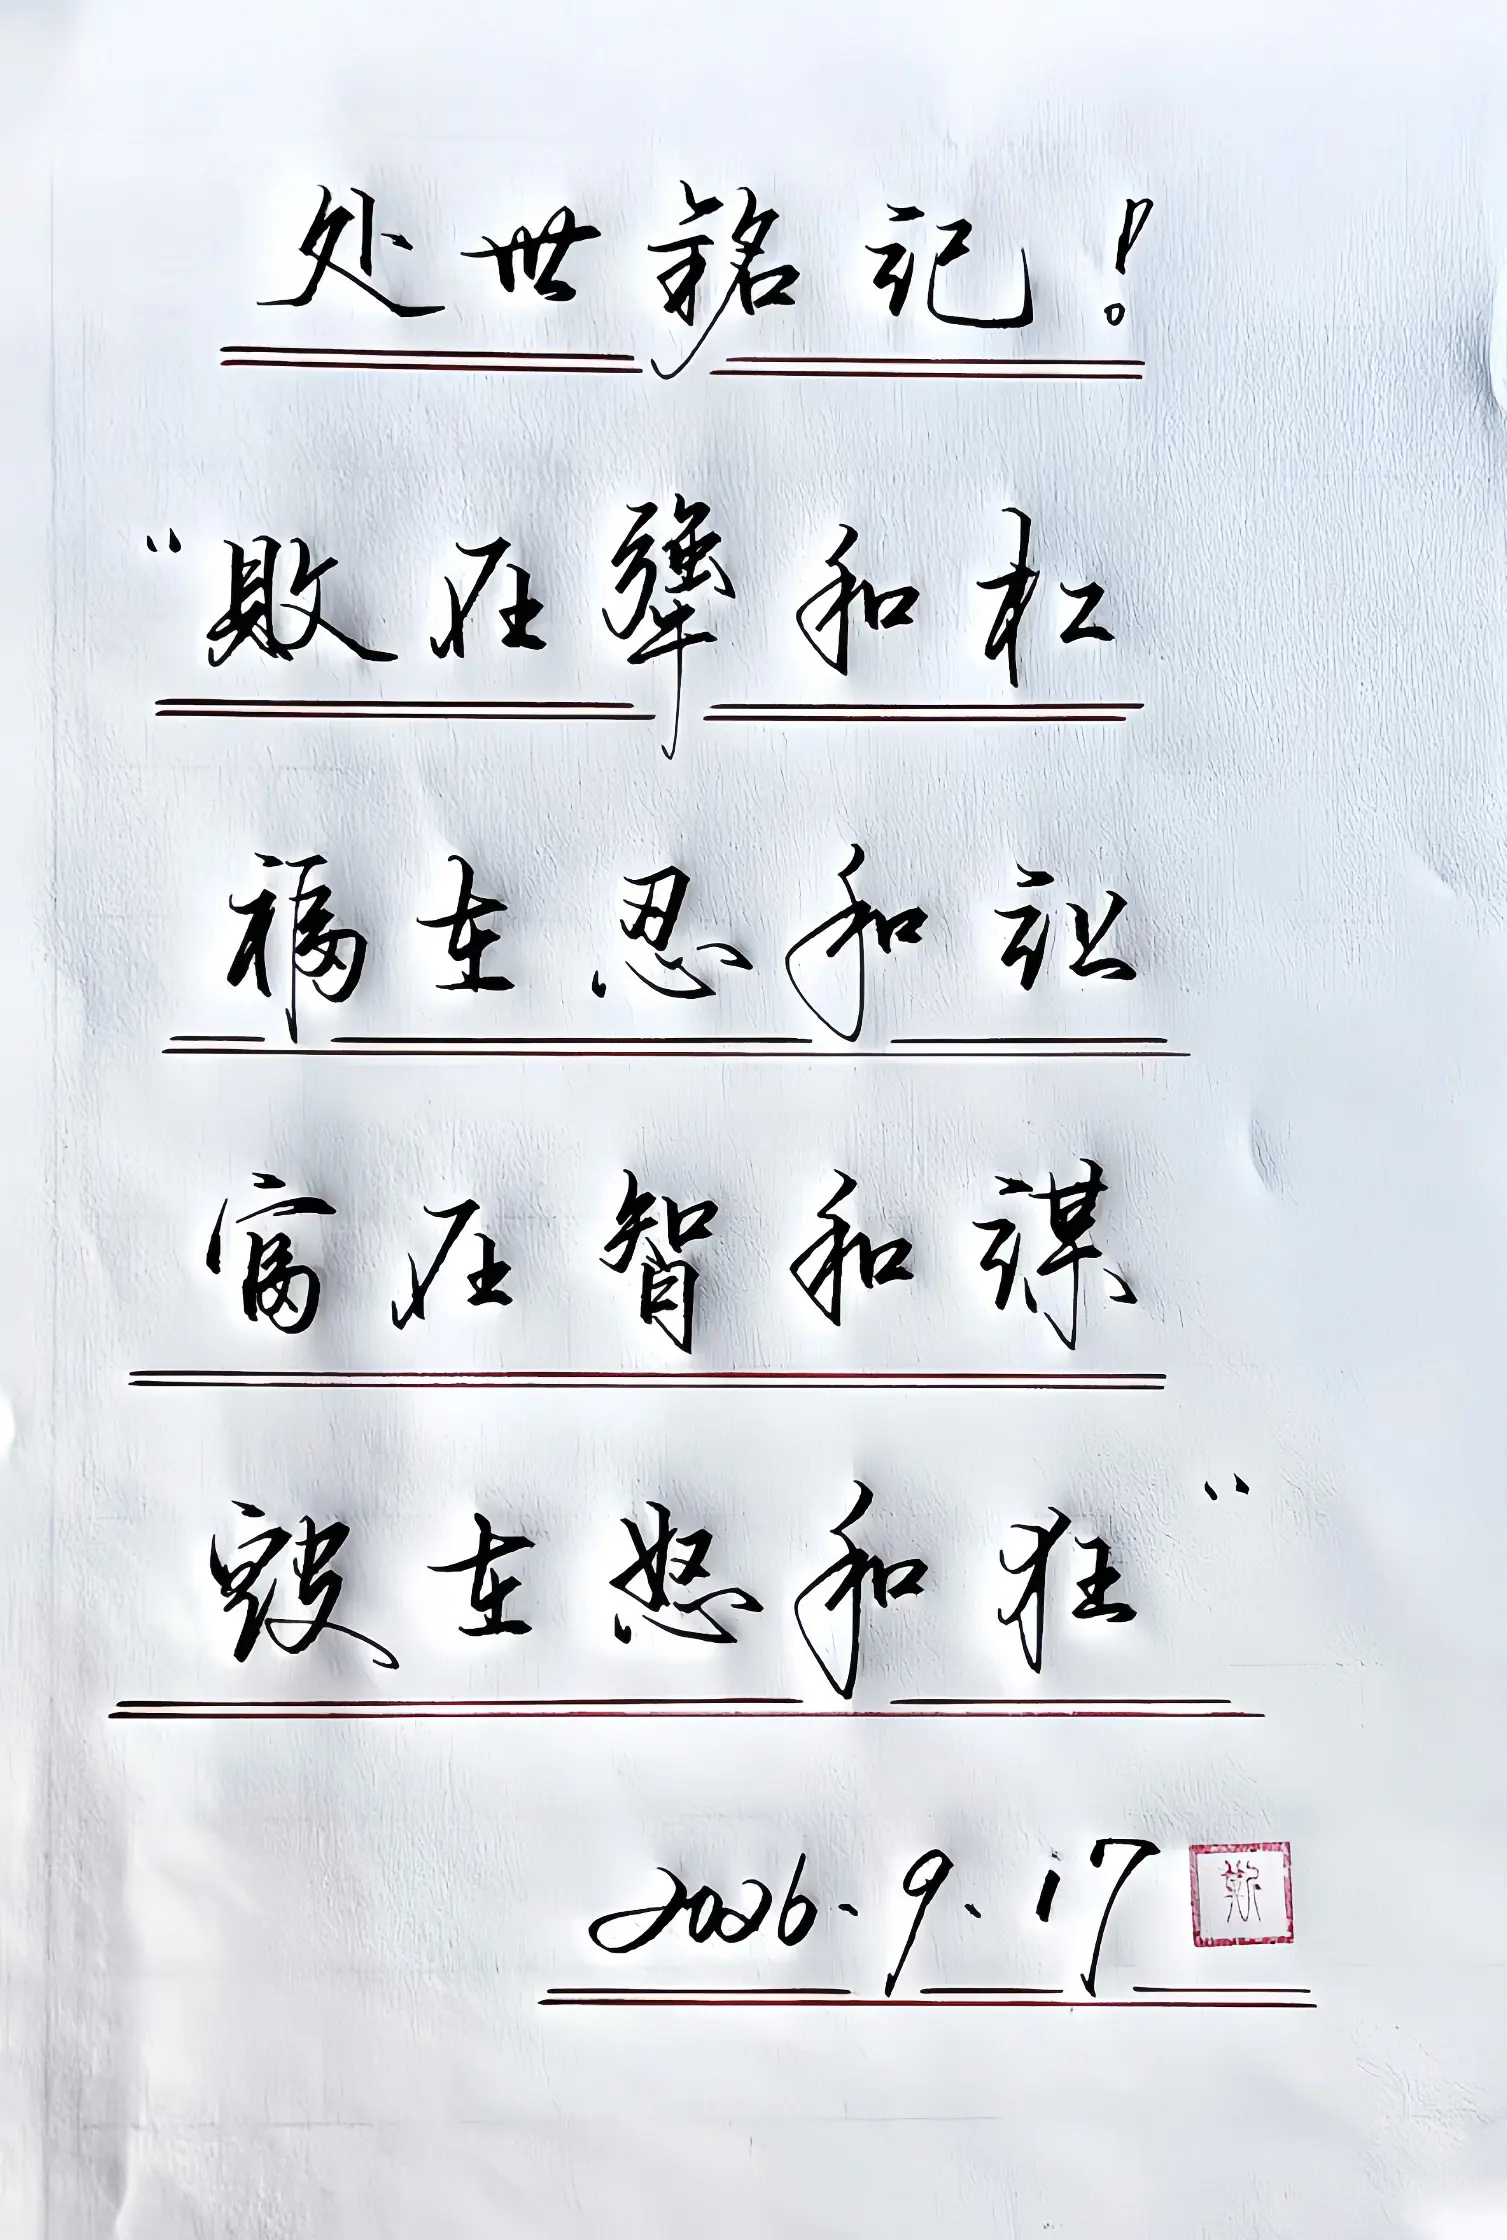 处世铭记！
“败在犟和杠
福在忍和让
富在智和谋
毁在怒和狂”
2026.9.17